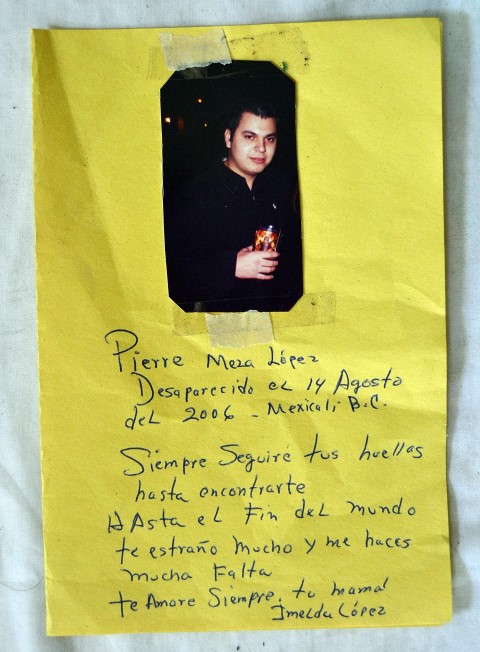 Pierre Meza López
Desaparecido el 14 Agosto
del 2006 - Mexicali B.C.
Siempre Seguiré tus huellas
hasta encontrarte
HAsta el Fin del mundo
te estraño Mucho y me haces
mucha Falta
te Amare Siempre. tu mamá
Imelda López